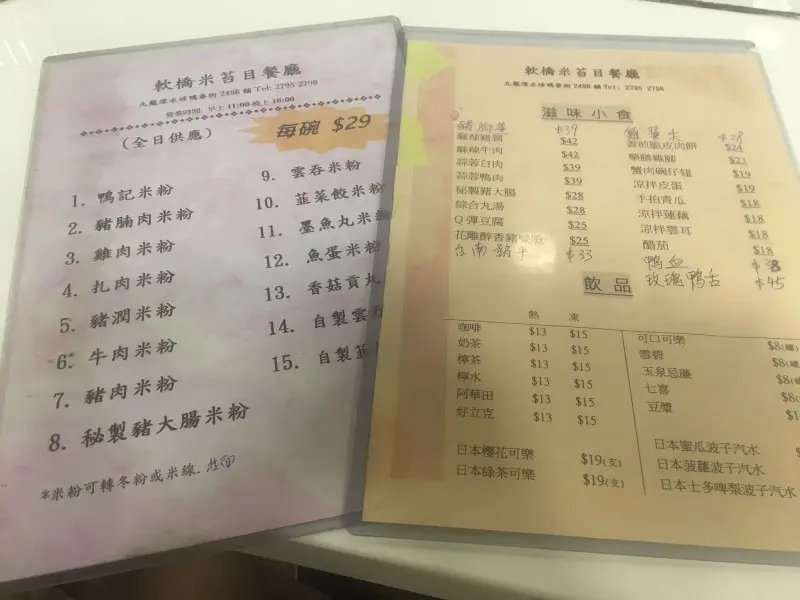 軟橋米苔目餐廳
九龍深水埗鴨寮街249B 舖 Tel: 2795 2798
營業時間: 早上 11:00-晚上 10:00
(全日供應)
每碗 $29
1. 鴨記米粉
2. 豬腩肉米粉
3. 雞肉米粉
4. 扎肉米粉
5. 豬潤米粉
6. 牛肉米粉
7. 豬肉米粉
8. 秘製豬大腸米粉
9. 雲吞米粉
10. 韮菜餃米粉
11. 墨魚丸米粉
12. 魚蛋米粉
13. 香菇貢丸
14. 自製雲
15. 自製韮
*米粉可轉冬粉或米線.
軟橋米苔目餐廳
九龍深水埗鴨寮街 249B 舖 Tel: 2795 2798
滋味小食
$39
麻辣豬潤 $42
麻辣牛肉 $42
蒜蓉白肉 $39
蒜蓉鴨肉 $39
秘製豬大腸 $28
綜合丸湯 $28
Q 彈豆腐 $25
花雕醉香豬 $25
台南 $33
香煎脆皮肉餅 $24
藥膳雞腳 $23
蟹肉碗仔翅 $19
涼拌皮蛋 $19
手拍青瓜 $18
涼拌蓮藕 $18
涼拌雲耳 $18
醋茄 $18
鴨血
玫瑰鴨舌 $45
飲品
熱 凍
咖啡 $13 $15
奶茶 $13 $15
檸茶 $13 $15
檸水 $13 $15
阿華田 $13 $15
好立克 $13 $15
日本櫻花可樂 $19(支)
日本綠茶可樂 $19(支)
可口可樂 $8(罐)
雪碧 $8(罐
玉泉忌廉 $8(
七喜 $8(
豆漿
日本蜜瓜波子汽水
日本菠蘿波子汽水
日本士多啤梨波子汽水